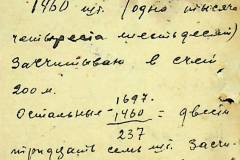 1460 шт. (одна тысяча
четыреста шестьдесят)
Засчитываю в счет
200 м.
1697.
Остальные - 1460 = двести
237
тридцать семь шт. засчи-